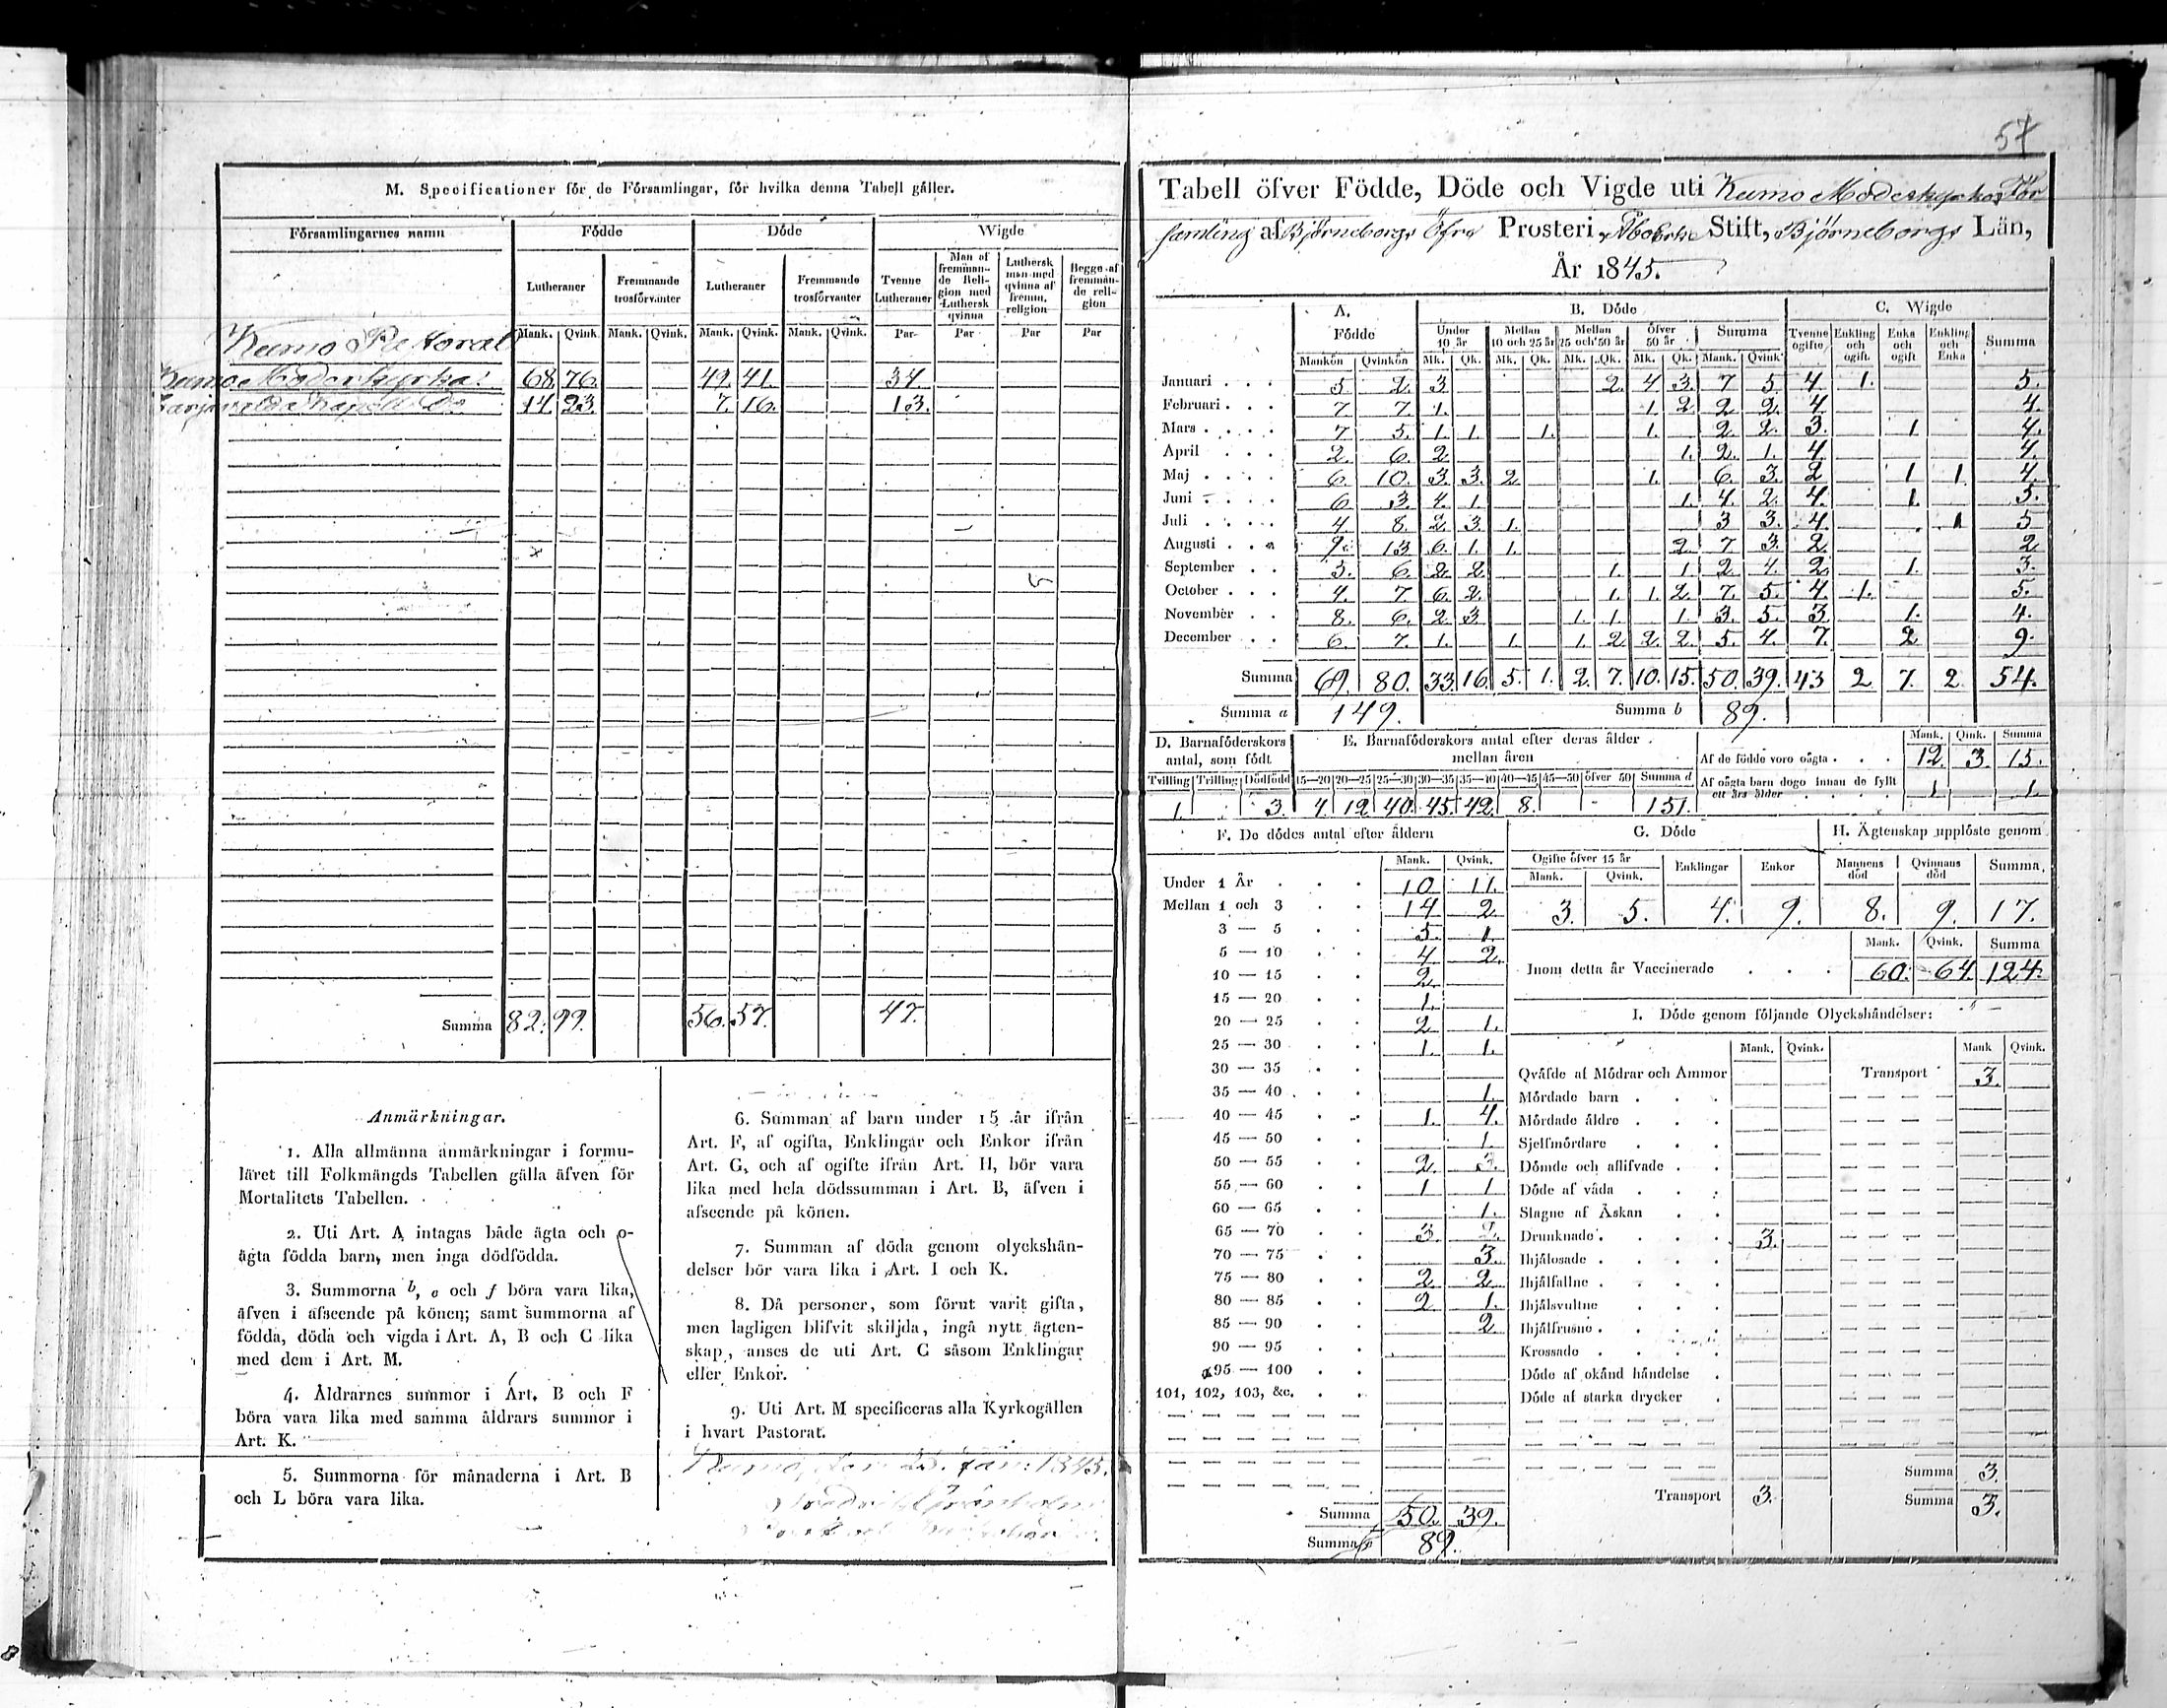 M. Specificationer för de Församlingar, för hvilka denna Tabell gäller.
Församlingarnes namn Födde Döde Wigde
Lutheraner Fremmande trosförvanter Lutheraner Fremmande trosförvanter Tvenne Lutheraner Man af fremmande Religion med Luthersk qvinna Luthersk man med qvinna af fremm. religion Begge af fremmande religion
Mank. Qvink. Mank. Qvink. Mank. Qvink. Mank. Qvink. Par Par Par Par
Kumo Pastorat
Kumo Moderkyrka 68 76. 49. 41. 34
Kapell 14. 23. 7. 16. 13.
Summa 82. 99. 56. 57. 47.
Anmärkningar.
1. Alla allmänna anmärkningar i formu-
läret till Folkmängds Tabellen gälla äfven för
Mortalitets Tabellen.
2. Uti Art. A intagas både ägta och o-
ägta födda barn, men inga dödfödda.
3. Summorna b, c och f böra vara lika,
äfven i afseende på könen; samt summorna af
födda, döda och vigda i Art. A, B och C lika
med dem i Art. M.
4. Åldrarnes summor i Art. B och F
böra vara lika med samma åldrars summor i
Art. K.
5. Summorna för månaderna i Art. B
och L böra vara lika.
6. Summan af barn under 15 år ifrån
Art. F, af ogifta, Enklingar och Enkor ifrån
Art. G, och af ogifte ifrån Art. H, bör vara
lika med hela dödssumman i Art. B, äfven i
afseende på könen.
7. Summan af döda genom olyckshän-
delser bör vara lika i Art. I och K.
8. Då personer, som förut varit gifta,
men lagligen blifvit skiljda, ingå nytt ägten-
skap, anses de uti Art. C såsom Enklingar
eller Enkor.
9. Uti Art. M specificeras alla Kyrkogällen
i hvart Pastorat.
Kumo, den
57
Tabell öfver Födde, Döde och Vigde uti Kumo Moderkyrkos För
samling af Björneborgs Öfre Prosteri, Åbo Stift, Björneborgs Län,
År 1845.
A. Födde B. Döde C. Wigde
Under 10 år Mellan 10 och 25 år Mellan 25 och 50 år Öfver 50 år Summa Tvenne ogifte Enkling och ogift. Enka och ogift Enkling och Enka Summa
Mankön Qvinkön Mk. Qk. Mk. Qk. Mk. Qk. Mk. Qk. Mank. Qvink.
Januari 5 2. 3 2. 4 3. 7 5 4 1. 5.
Februari 7 7. 1. 1. 2 2 2. 4 4.
Mars 7 5. 1. 1. 1. 1. 2. 2. 3. 1 4.
April 2. 6. 2 1. 2. 1. 4 4.
Maj 6. 10. 3. 3. 2 1. 6. 3. 2 1 1. 4.
Juni 6 3. 4. 1. 1. 4. 2. 4. 1. 5.
Juli 4 8. 2. 3. 1. 3 3. 4. 1 5
Augusti 9. 13 6. 1. 1. 2. 7 3. 2. 2
September 3. 6. 2. 2. 1. 1 2. 4. 2. 1. 3.
October 4. 7. 6. 2. 1. 1. 2. 7. 5. 4. 1. 5.
November 8. 6. 2. 3 1. 1. 1. 3. 5. 3 1. 4.
December 6. 7. 1. 1. 1. 2 2. 2. 5. 4. 7. 2 9.
Summa 69. 80. 33. 16. 5. 1. 2. 7. 10. 15. 50. 39. 43 2 7. 2. 54.
Summa a 149. Summa b 89.
D. Barnaföderskors antal, som födt E. Barnaföderskors antal efter deras ålder mellan åren Mank. Qink. Summa
Af de födde voro oägta 12. 3. 15.
Tvilling Trilling Dödfödd 15—20 20—25 25—30 30—35 35—40 40—45 45—50 öfver 50 Summa d
Af oägta barn dogo innan de fyllt ett års ålder 1. 1.
1. 3. 4. 12. 40. 45. 42. 8. 151.
F. De dödes antal efter åldern
Mank. Qvink.
Under 1 År 10 11.
Mellan 1 och 3 14 2
3 — 5 5. 1.
5 — 10 4 2.
10 — 15 2.
15 — 20 1.
20 — 25 2 1.
25 — 30 1. 1.
30 — 35
35 — 40 1.
40 — 45 1. 4.
45 — 50 1.
50 — 55 2. 3.
55 — 60 1 1
60 — 65 1.
65 — 70 3. 2.
70 — 75 3.
75 — 80 2. 2
80 — 85 2 1.
85 — 90 2.
90 — 95
95 — 100
101, 102, 103, &c.
Summa 50. 39.
Summa 89.
G. Döde H. Ägtenskap upplöste genom
Ogifte öfver 15 år Enklingar Enkor Mannens död Qvinnans död Summa.
Mank. Qvink.
3. 5. 4. 9. 8. 9. 17.
Mank. Qvink. Summa
Inom detta år Vaccinerade 60. 64. 124.
I. Döde genom följande Olyckshändelser:
Mank. Qvink. Mank Qvink.
Qväfde af Mödrar och Ammor Transport 3.
Mördade barn
Mördade äldre
Sjelfmördare
Dömde och aflifvade
Döde af våda
Slagne af Åskan
Drunknade 3.
Ihjälosade
Ihjälfallne
Ihjälsvultne
Ihjälfrusne
Krossade
Döde af okänd händelse
Döde af starka drycker
Summa 3.
Transport 3. Summa 3.